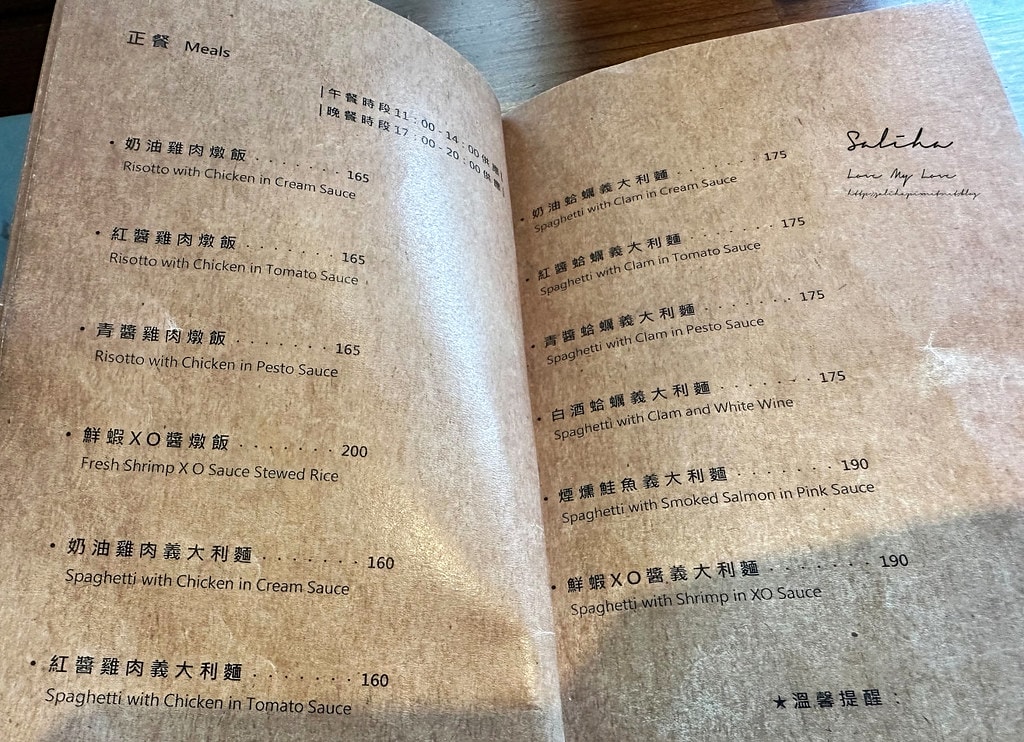 正餐 Meals
|午餐時段11:00-14:00供應|
|晚餐時段17:00-20:00供應|
• 奶油雞肉燉飯 . . . . . . . 165
Risotto with Chicken in Cream Sauce
• 紅醬雞肉燉飯 . . . . . . . 165
Risotto with Chicken in Tomato Sauce
• 青醬雞肉燉飯 . . . . . . . . 165
Risotto with Chicken in Pesto Sauce
• 鮮蝦XO醬燉飯 . . . . . . . . 200
Fresh Shrimp X O Sauce Stewed Rice
• 奶油雞肉義大利麵 . . . . . . . . 160
Spaghetti with Chicken in Cream Sauce
• 紅醬雞肉義大利麵 . . . . . . . . 160
Spaghetti with Chicken in Tomato Sauce
Saliha
Love My Love
• 奶油蛤蠣義大利麵 . . . . . . . 175
Spaghetti with Clam in Cream Sauce
• 紅醬蛤蠣義大利麵 . . . . . . . 175
Spaghetti with Clam in Tomato Sauce
• 青醬蛤蠣義大利麵 . . . . . . . 175
Spaghetti with Clam in Pesto Sauce
• 白酒蛤蠣義大利麵 . . . . . . . 175
Spaghetti with Clam and White Wine
• 煙燻鮭魚義大利麵 . . . . . . . 190
Spaghetti with Smoked Salmon in Pink Sauce
• 鮮蝦XO醬義大利麵 . . . . . . . 190
Spaghetti with Shrimp in XO Sauce
★溫馨提醒：